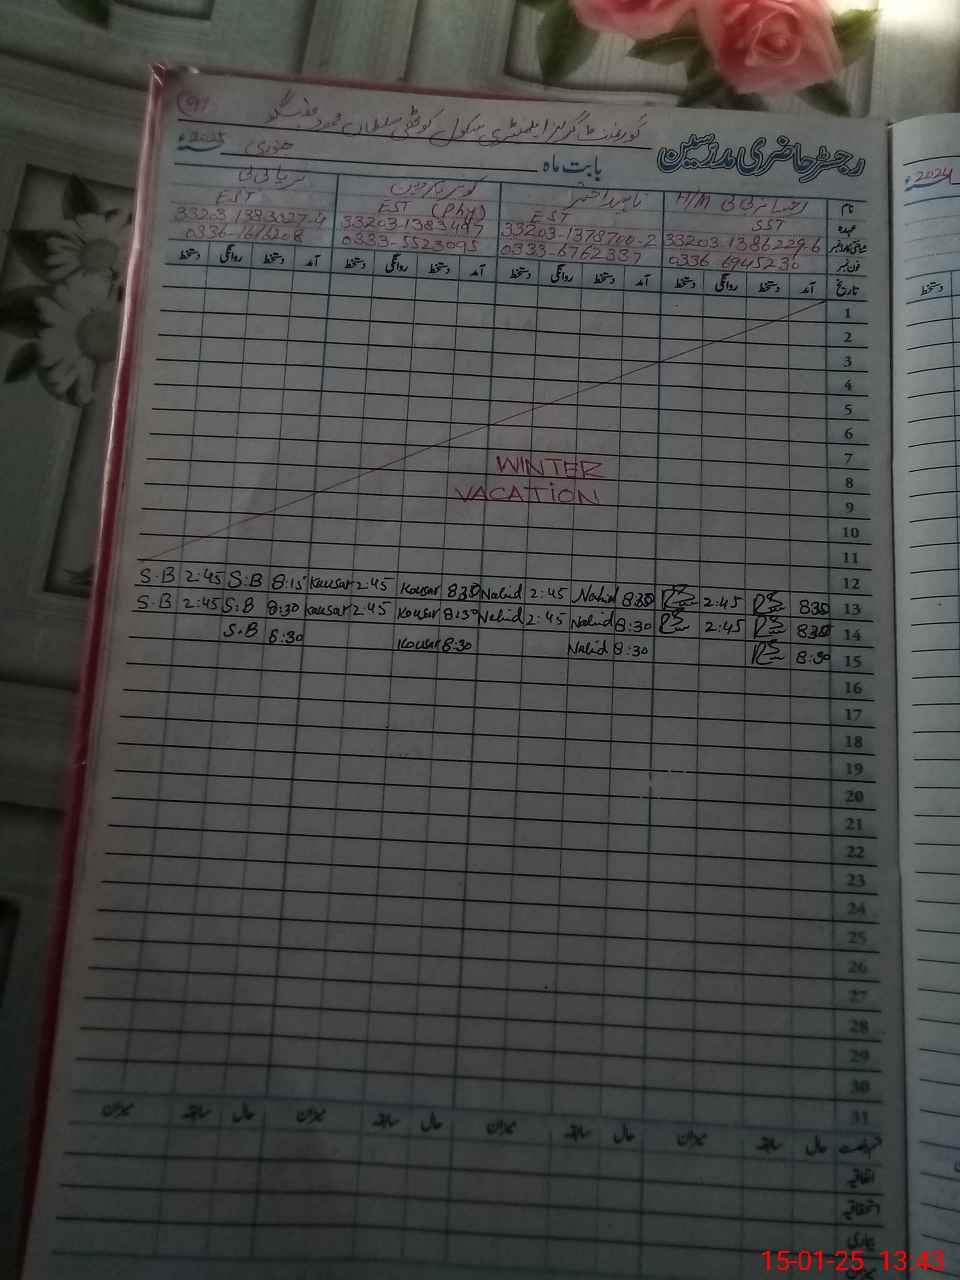 رجسٹر حاضری مدرسین
گورنمنٹ گرلز ایلیمنٹری سکول کوٹلی سلطان
بابت ماہ جنوری 2025ء
نام
عہدہ H/M SST EST EST (Phy) EST
33203-1386229-6 33203-1378700-2
فون نمبر 0336 6945230 0333-6762337 0333-5523095
تاریخ آمد دستخط روانگی دستخط آمد دستخط روانگی دستخط آمد دستخط روانگی دستخط آمد دستخط روانگی دستخط
1
2
3
4
5
6
7
WINTER
8
VACATION
9
10
11
12
S.B 2:45 S.B 8:15 Kousar 2:45 Kousar 8:30 Nahid 2:45 Nahid 8:30 2:45 8:30
13
S.B 2:45 S.B 8:30 Kousar 2:45 Kousar 8:30 Nahid 2:45 Nahid 8:30 2:45 8:30
14
S.B 8:30 Kousar 8:30 Nahid 8:30 8:30
15
16
17
18
19
20
21
22
23
24
25
26
27
28
29
30
31
حال سابقہ میزان حال سابقہ میزان حال سابقہ میزان حال سابقہ میزان
اتفاقیہ
استحقاقیہ
بیماری
2024ء
دستخط
15-01-25 13:43